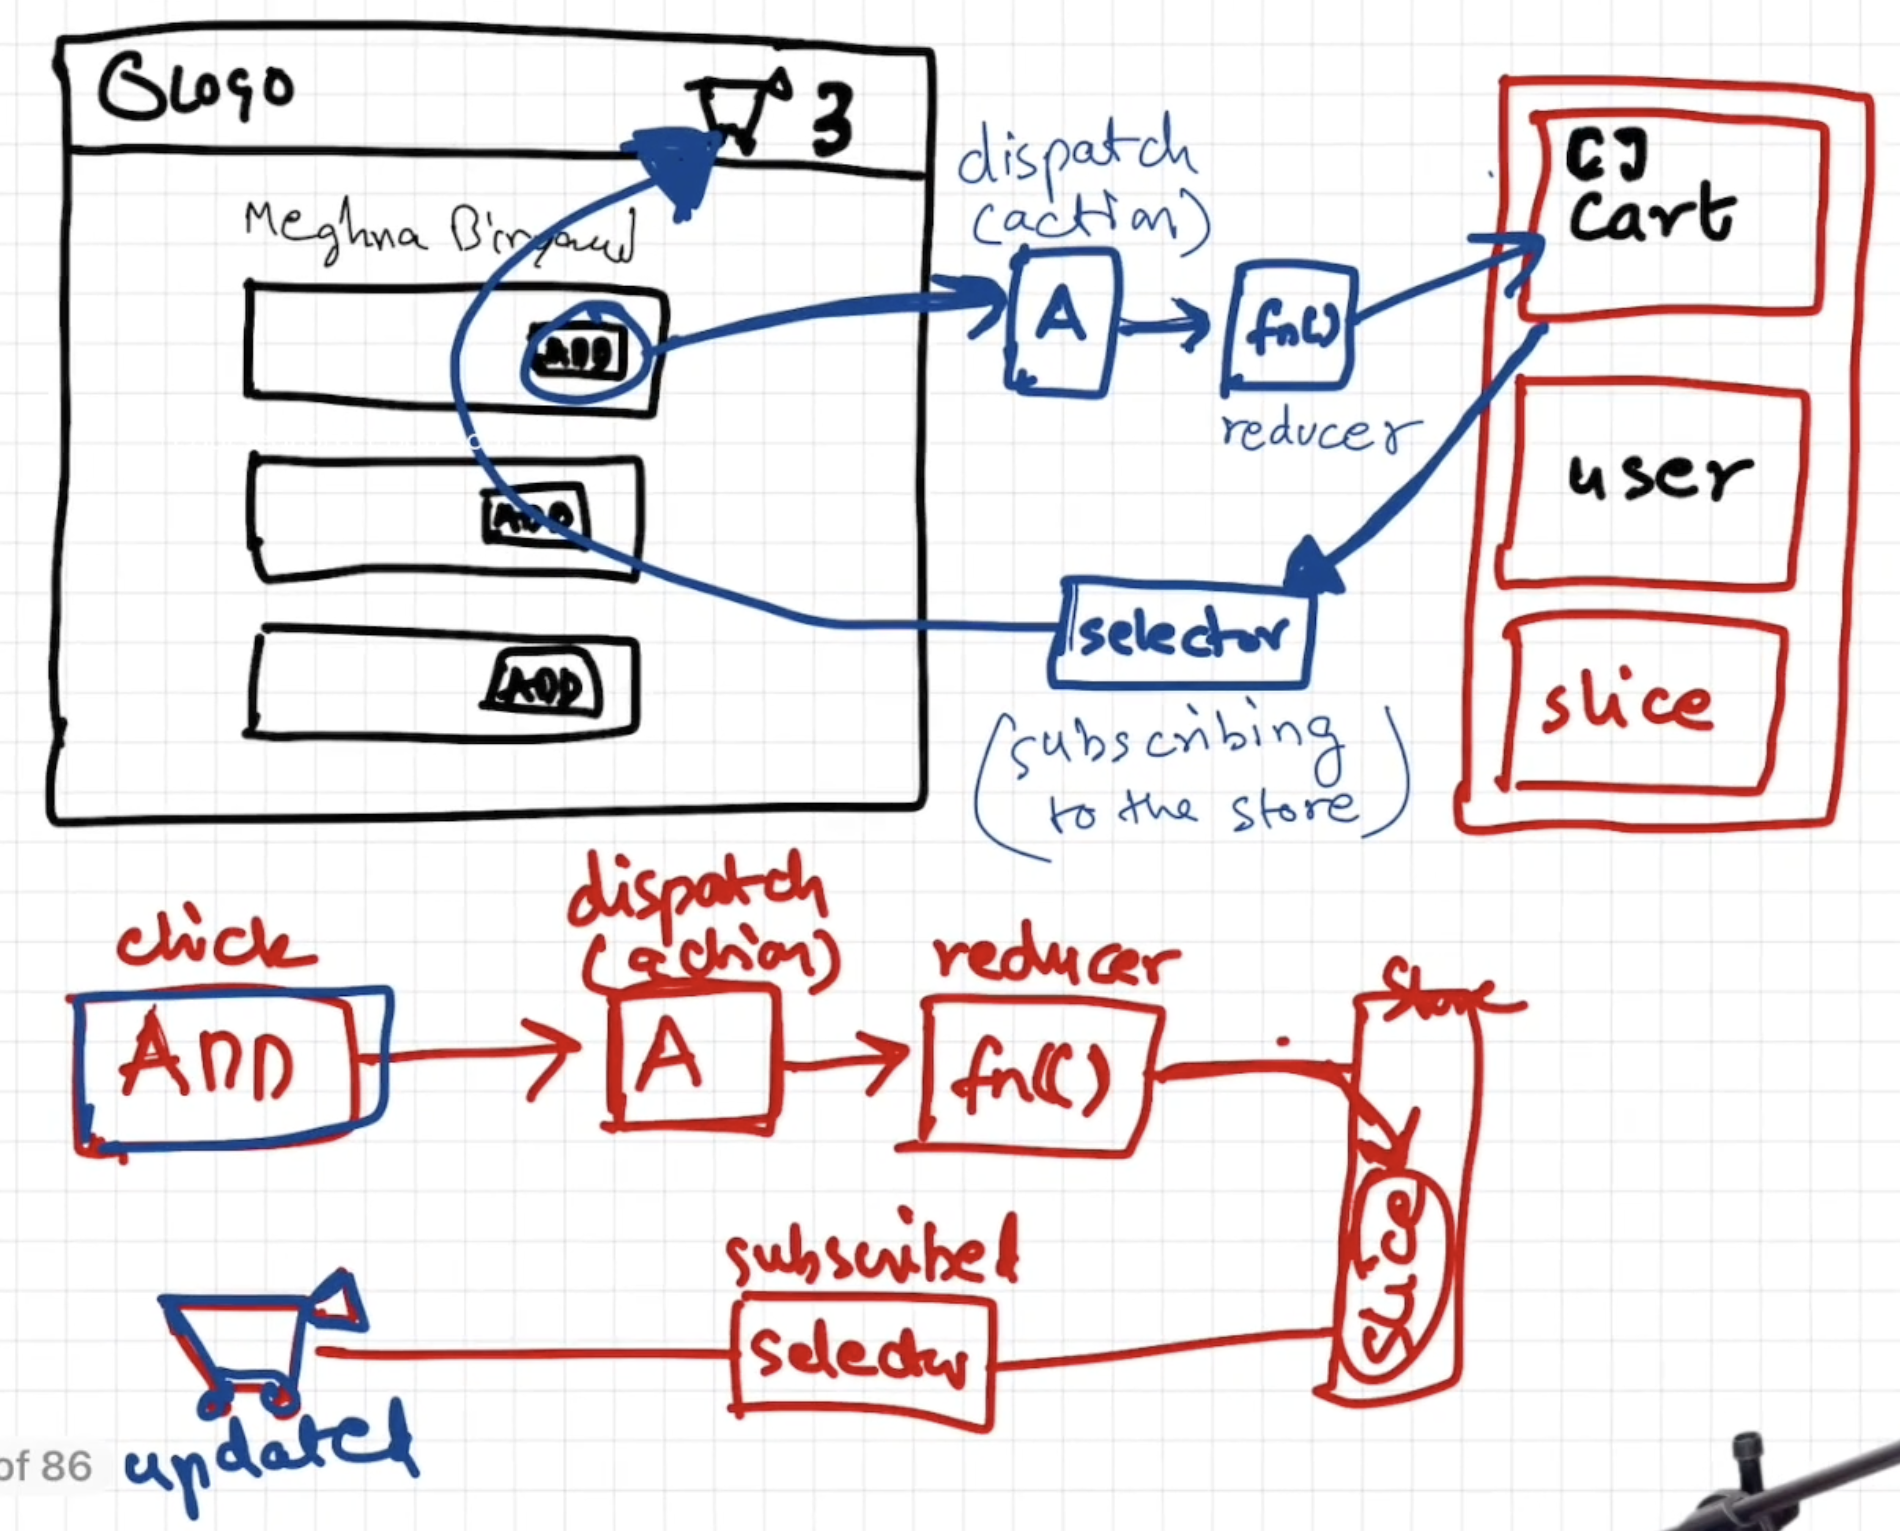 LOGO
3
Meghna
ADD
ADD
ADD
dispatch
(action)
A
fn()
reducer
[]
cart
user
slice
selector
(subscribing
to the store)
click
ADD
dispatch
(action)
A
reducer
fn()
Store
slice
subscribed
selector
updated
of 86